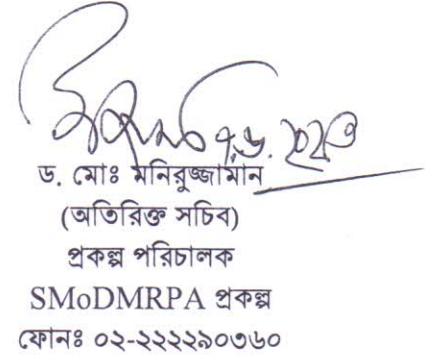 ড. মোঃ মনিরুজ্জামান
(অতিরিক্ত সচিব)
প্রকল্প পরিচালক
SMoDMRPA প্রকল্প
ফোনঃ ০২-২২২২৯০৩৬০